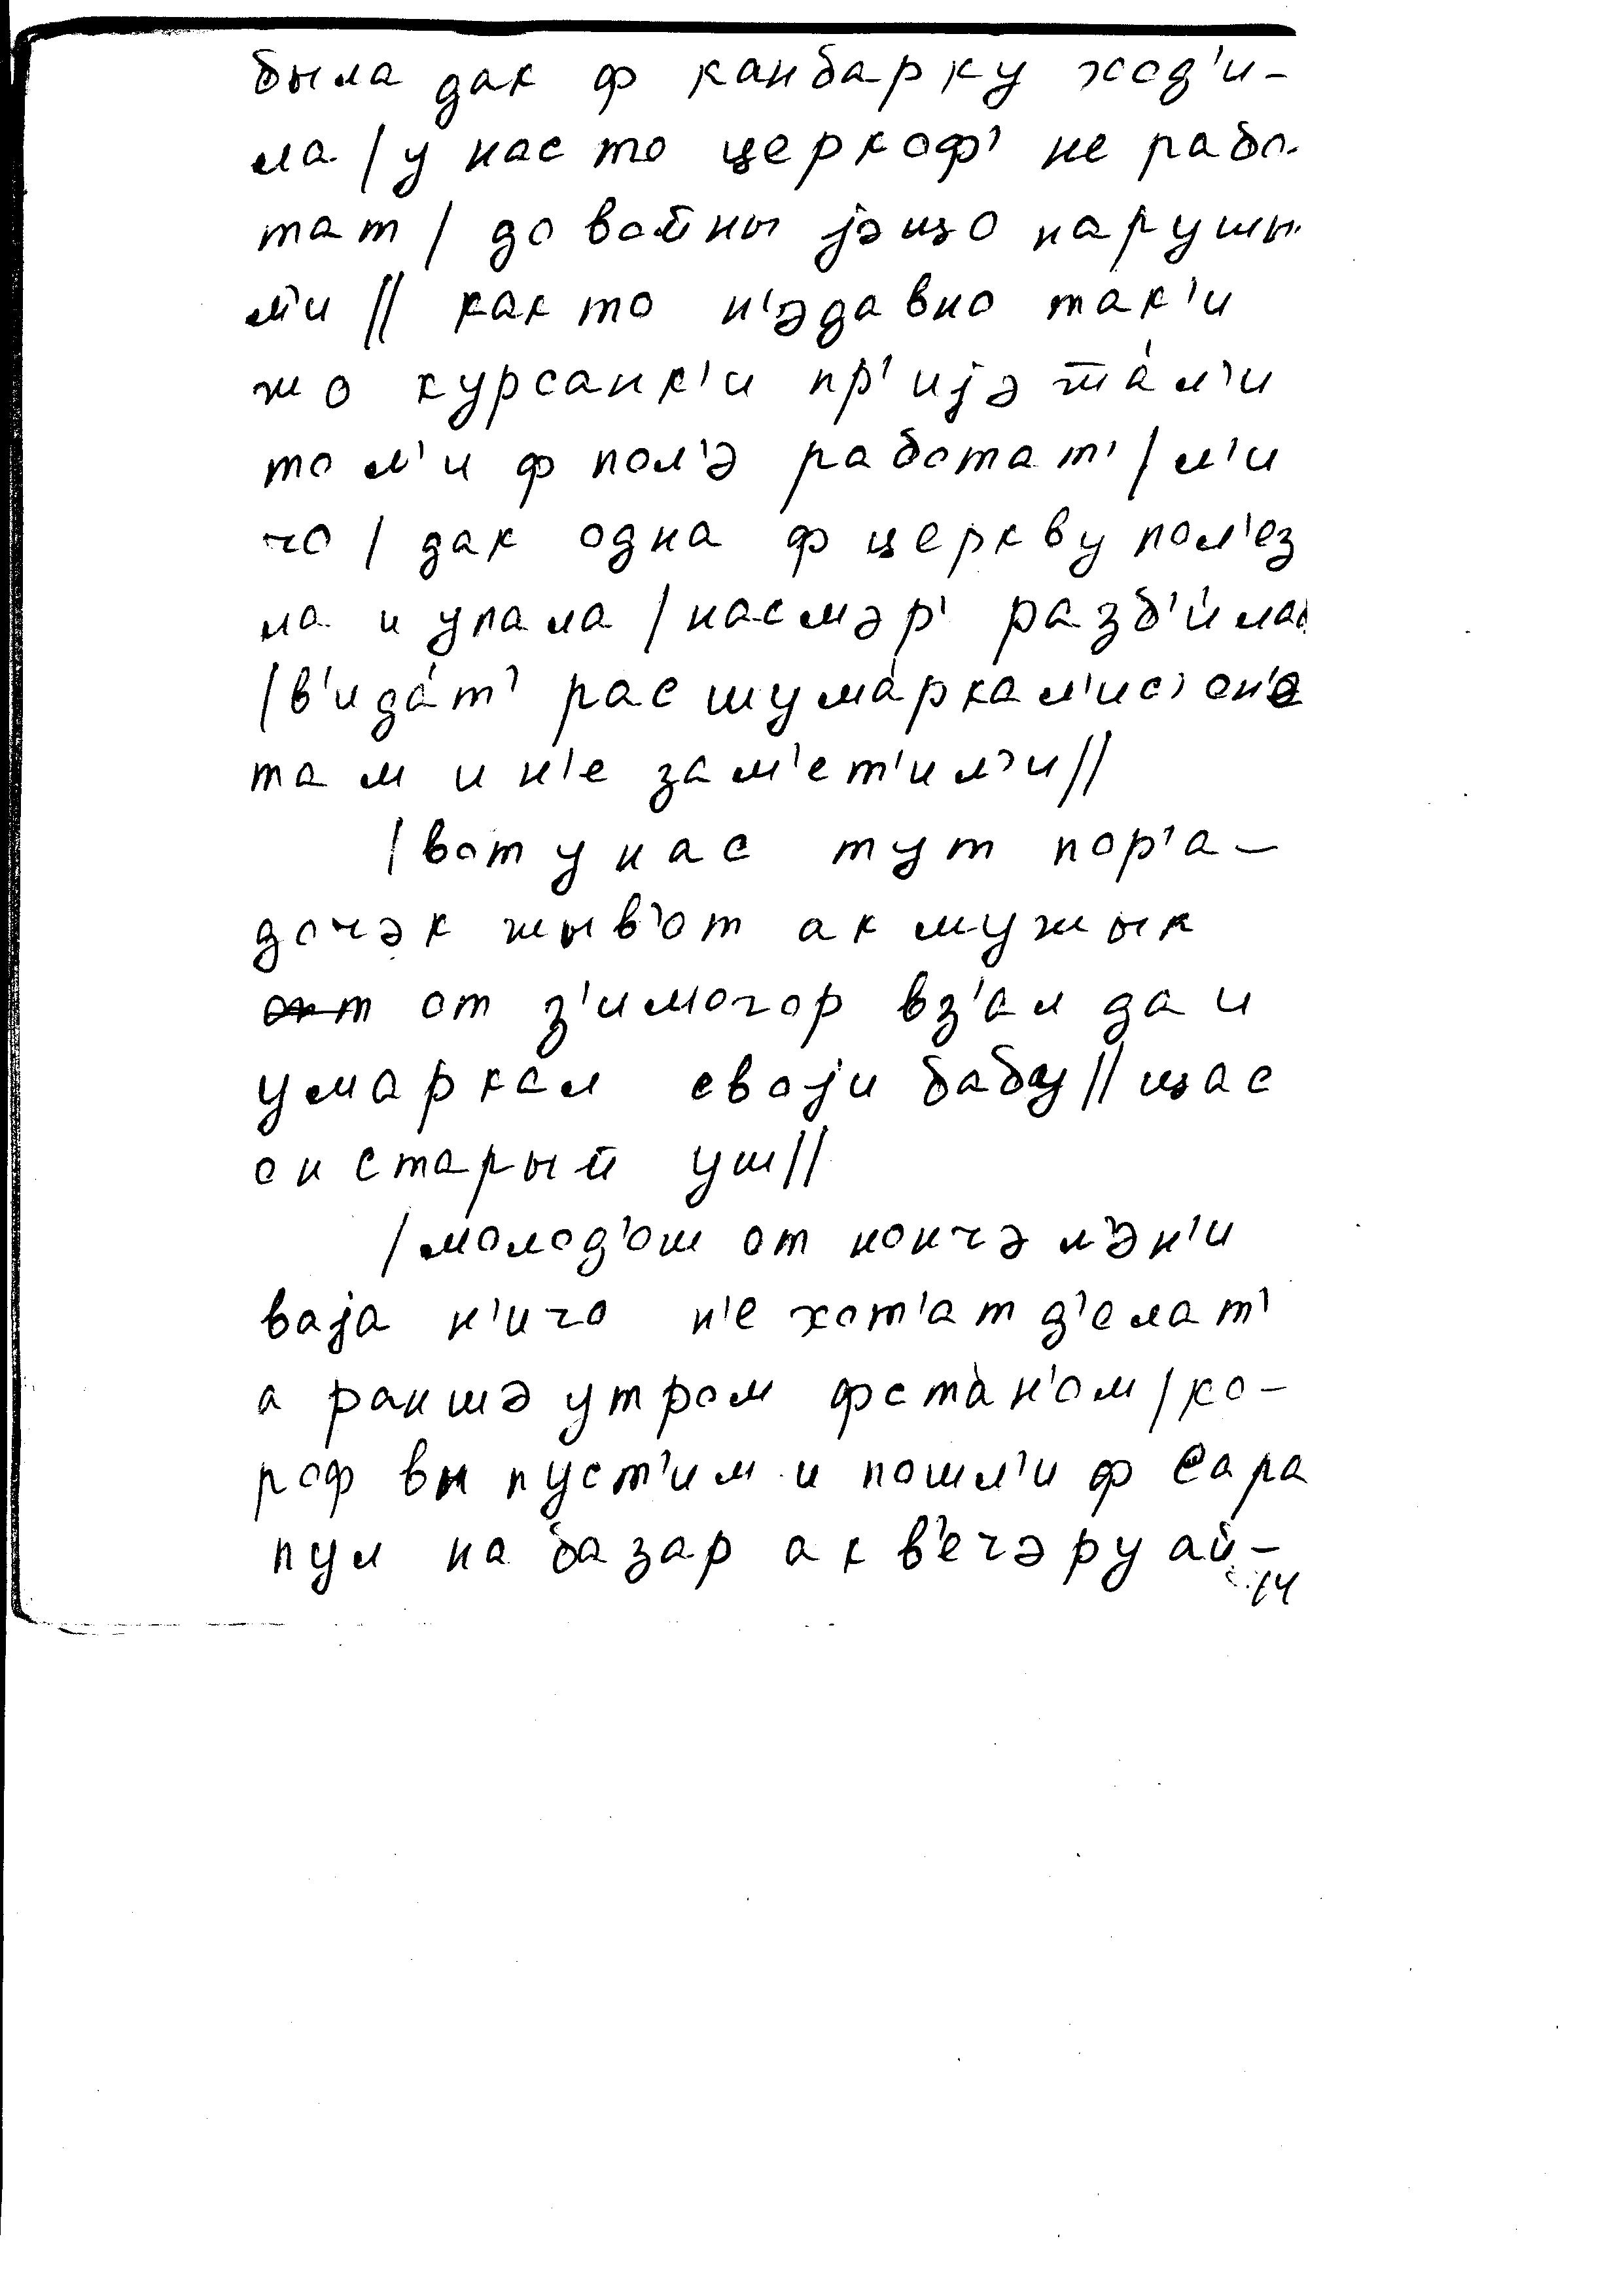 была дак ф канбарку ход'и-
ла / у нас то церкоф' не рабо-
тат / до войны јэщо нарушы-
л'и // как то н'эдавно так'и
жо курсанк'и пр'ијэжа́л'и
то л'и ф пол'э работат' / л'и
чо / дак одна ф церкву пол'ез
ла и упала / насмэр' разб'и́лас'
/ в'ида́т' расшума́ркал'ис' он'е
там и н'е зам'ет'ил'и //
/ вот у нас тут пор'а-
дочэк жыв'от ак мужык
от з'имогор вз'ал да и
умаркал своји бабу // щас
он старый уш //
/ молод'ош от нончэ л'эн'и
ваја н'ичо н'е хот'ат д'елат'
а раншэ утром фста́н'ом / ко-
роф вы пуст'им и пошл'и ф Сара
пул на базар а к в'ечэру ай-
14